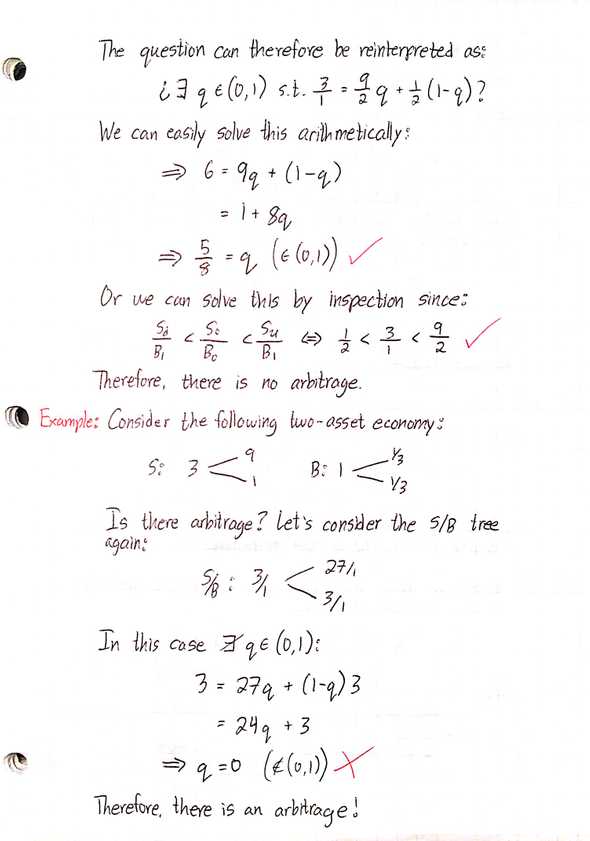 The question can therefore be reinterpreted as:
¿∃ q ∈ (0,1) s.t. 3/1 = 9/2 q + 1/2 (1-q)?
We can easily solve this arithmetically:
⇒ 6 = 9q + (1-q)
= 1 + 8q
⇒ 5/8 = q (∈ (0,1)) ✓
Or we can solve this by inspection since:
S_d/B_1 < S_0/B_0 < S_u/B_1 ⇔ 1/2 < 3/1 < 9/2 ✓
Therefore, there is no arbitrage.
Example: Consider the following two-asset economy:
S: 3 < 9 1 B: 1 < 1/3 1/3
Is there arbitrage? Let's consider the S/B tree
again:
S/B : 3/1 < 27/1 3/1
In this case ∄ q ∈ (0,1):
3 = 27q + (1-q) 3
= 24q + 3
⇒ q = 0 (∉ (0,1)) ✗
Therefore, there is an arbitrage!